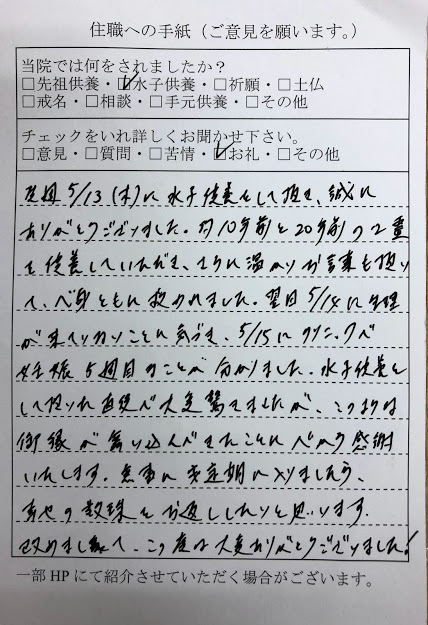 住職への手紙（ご意見を願います。）
当院では何をされましたか？
□先祖供養・☑水子供養・□祈願・□土仏
□戒名・□相談・□手元供養・□その他
チェックをいれ詳しくお聞かせ下さい。
□意見・□質問・□苦情・☑お礼・□その他
先週 5/13 (木)に水子供養をして頂き、誠に
ありがとうございました。約10年前と20年前の2霊
を供養していただき、さらに温かいお言葉も頂い
て、心身ともに救われました。翌日 5/14に生理
が来ていないことに気づき、5/15にクリニックで
妊娠5週目のことが分かりました。水子供養を
して頂いた直後で大変驚きましたが、このような
御縁が舞い込んできたことに心から感謝
いたします。無事に安定期に入りましたら、
幸せの数珠をお返ししたいと思います。
改めまして、この度は大変ありがとうございました！
一部HPにて紹介させていただく場合がございます。